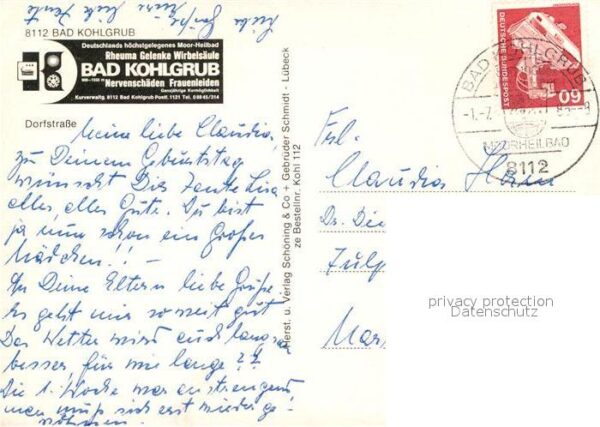 8112 BAD KOHLGRUB
Deutschlands höchstgelegenes Moor-Heilbad
Rheuma Gelenke Wirbelsäule
BAD KOHLGRUB
Nervenschäden Frauenleiden
Ganzjährige Kurmöglichkeit
Kurverwaltg. 8112 Bad Kohlgrub Postf. 1121 Tel. 0 88 45/314
Dorfstraße
Meine liebe Claudia,
zu Deinem Geburtstag
wünscht Dir Tante Lisa
alles, alles Gute. Du bist
ja nun schon ein großes
Mädchen!! –
An Deine Eltern liebe Grüße
Es geht mir soweit gut
Das Wetter wird auch langsam
besser, für wie lange??
Die 1. Woche war anstrengend
man muß sich erst wieder ge!
wöhnen.
Liebe Grüße
Eure Tante
Herst. u. Verlag Schöning & Co + Gebrüder Schmidt · Lübeck
ze Bestellnr. Kohl 112
DEUTSCHE BUNDESPOST
60
BAD KOHLGRUB
MOORHEILBAD
8112
Frl.
Claudia
Dr. Die
Zülp
Mar
privacy protection
Datenschutz